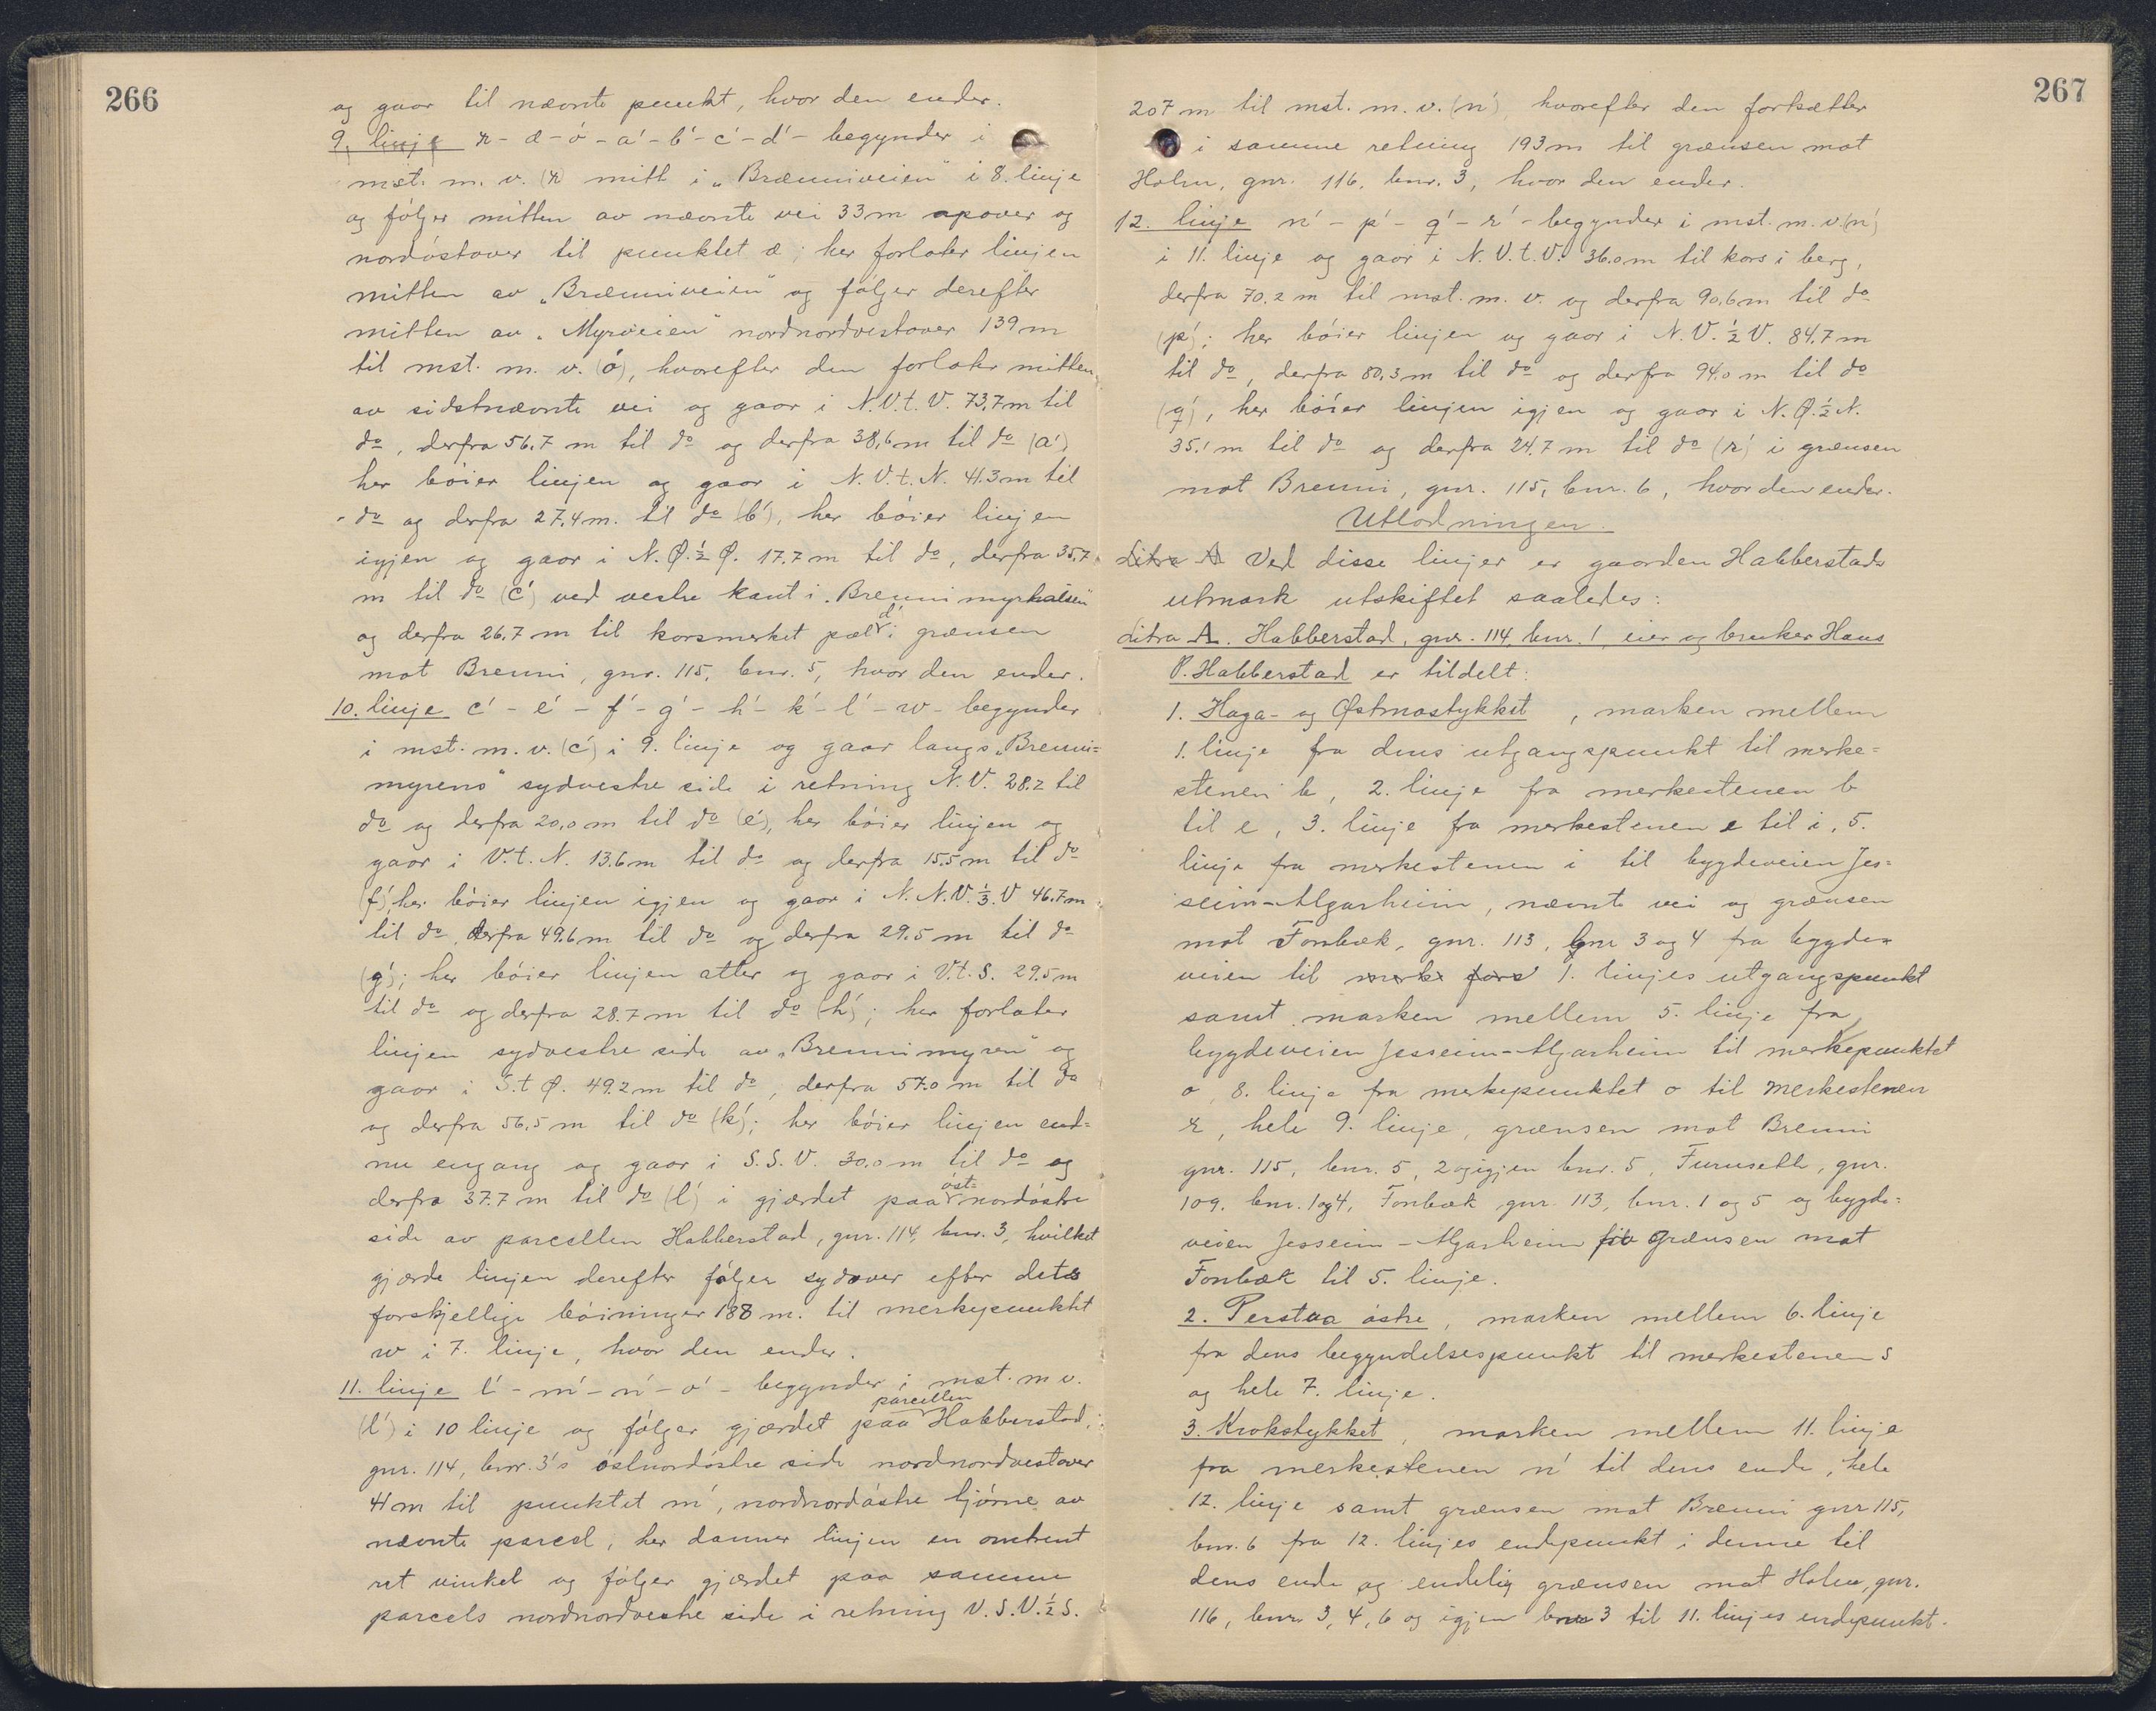 266
og gaar til nævnte punkt, hvor den ender.
9. linje r - æ - ó - a' - b' - c' - d' - begynder i
mst. m. v. (r) mitt i „Brænniveien" i 8. linje
og følger mitten av nævnte vei 33 m opover og
nordóstover til punktet æ; her forlater linjen
mitten av „Brænniveien" og følger derefter
mitten av „Myrveien" nordnordvestover 139 m
til mst. m. v. (ó), hvorefter den forlater mitten
av sidstnævnte vei og gaar i N.V.t.V. 73,7 m til
do, derfra 56,7 m til do og derfra 38,6 m til do (a')
her bóier linjen og gaar i N.V.t.N. 41.3 m til
do og derfra 27,4 m. til do (b'), her bóier linjen
igjen og gaar i N.Ø.½Ø. 17.7 m til do, derfra 35,7
m til do (c') ved vestre kant i „Brennimyrhalsen"
og derfra 26,7 m til korsmerket pæl d' i grænsen
mot Brenni, gnr. 115, bnr. 5, hvor den ender.
10. linje c' - e' - f' - g' - h' - k' - l' - w - begynder
i mst. m. v. (c') i 9. linje og gaar langs „Brenni=
myrens" sydvestre side i retning N.V. 28.2 til
do og derfra 20,0 m til do (e'), her bóier linjen og
gaar i V.t.N. 13.6 m til do og derfra 15.5 m til do
(f'), her bóier linjen igjen og gaar i N.N.V.⅓.V 46.7 m
til do, derfra 49.6 m til do og derfra 29.5 m til do
(g'); her bóier linjen atter og gaar i V.t.S. 29.5 m
til do og derfra 28.7 m til do (h'); her forlater
linjen sydvestre side av „Brennimyren" og
gaar i S.t Ø. 49.2 m til do, derfra 57.0 m til do
og derfra 56,5 m til do (k'); her bóier linjen end=
nu engang og gaar i S.S.V. 30.0 m til do og
derfra 37.7 m til do (l') i gjærdet paa óst= nordóstre
side av parcellen Habberstad, gnr. 114, bnr. 3, hvilket
gjærde linjen derefter følger sydover efter dets
forskjellige bóininger 188 m. til merkepunktet
w i 7. linje, hvor den ender.
11. linje l' - m' - n' - o' - begynder i mst. m v.
(l') i 10 linje og følger gjærdet paa parcellen Habberstad,
gnr. 114, bnr. 3's óstnordóstre side nordnordvestover
41 m til punktet m', nordnordóstre hjórne av
nævnte parcel, her danner linjen en omtrent
ret vinkel og følger gjærdet paa samme
parcels nordnordvestre side i retning V.S.V.½S.
267
207 m til mst. m. v. (n'), hvorefter den fortsætter
i samme retning 193 m til grænsen mot
Holm, gnr. 116, bnr. 3, hvor den ender.
12. linje n' - p' - q' - r' - begynder i mst. m. v. (n')
i 11. linje og gaar i N.V.t.V. 36.0 m til kors i berg,
derfra 70.2 m til mst. m. v. og derfra 90,6 m til do
(p'); her bóier linjen og gaar i N.V.½V. 84.7 m
til do, derfra 80,3 m til do og derfra 94.0 m til do
(q'), her bóier linjen igjen og gaar i N.Ø.½N.
35.1 m til do og derfra 24.7 m til do (r') i grænsen
mot Brenni, gnr. 115, bnr. 6, hvor den ender.
Utlodningen.
Litra A Ved disse linjer er gaarden Habberstads
utmark utskiftet saaledes:
Litra A. Habberstad, gnr. 114, bnr. 1, eier og bruker Hans
P. Habberstad er tildelt:
1. Haga- og Østmostykket, marken mellem
1. linje fra dens utgangspunkt til merke=
stenen b, 2. linje fra merkestenen b
til e, 3. linje fra merkestenen e til i, 5.
linje fra merkestenen i til bygdeveien Jes=
seim-Algarheim, nævnte vei og grænsen
mot Fonbæk, gnr. 113, bnr 3 og 4 fra bygde=
veien til merk fors 1. linjes utgangspunkt
samt marken mellem 5. linje fra
bygdeveien Jesseim-Algarheim til merkepunktet
o, 8. linje fra merkepunktet o til merkestenen
r, hele 9. linje, grænsen mot Brenni
gnr. 115, bnr. 5, 2 og igjen bnr. 5, Furuseth, gnr.
109, bnr. 1 og 4, Fonbæk gnr. 113, bnr. 1 og 5 og bygde=
veien Jesseim - Algarheim fra grænsen mot
Fonbæk til 5. linje.
2. Perstua óstre, marken mellem 6. linje
fra dens begyndelsespunkt til merkestenen s
og hele 7. linje.
3. Krokstykket, marken mellem 11. linje
fra merkestenen n' til dens ende, hele
12. linje samt grænsen mot Brænni gnr 115,
bnr. 6 fra 12. linjes endepunkt i denne til
dens ende og endelig grænsen mot Holm, gnr.
116, bnr. 3, 4, 6 og igjen bnr 3 til 11. linjes endepunkt.